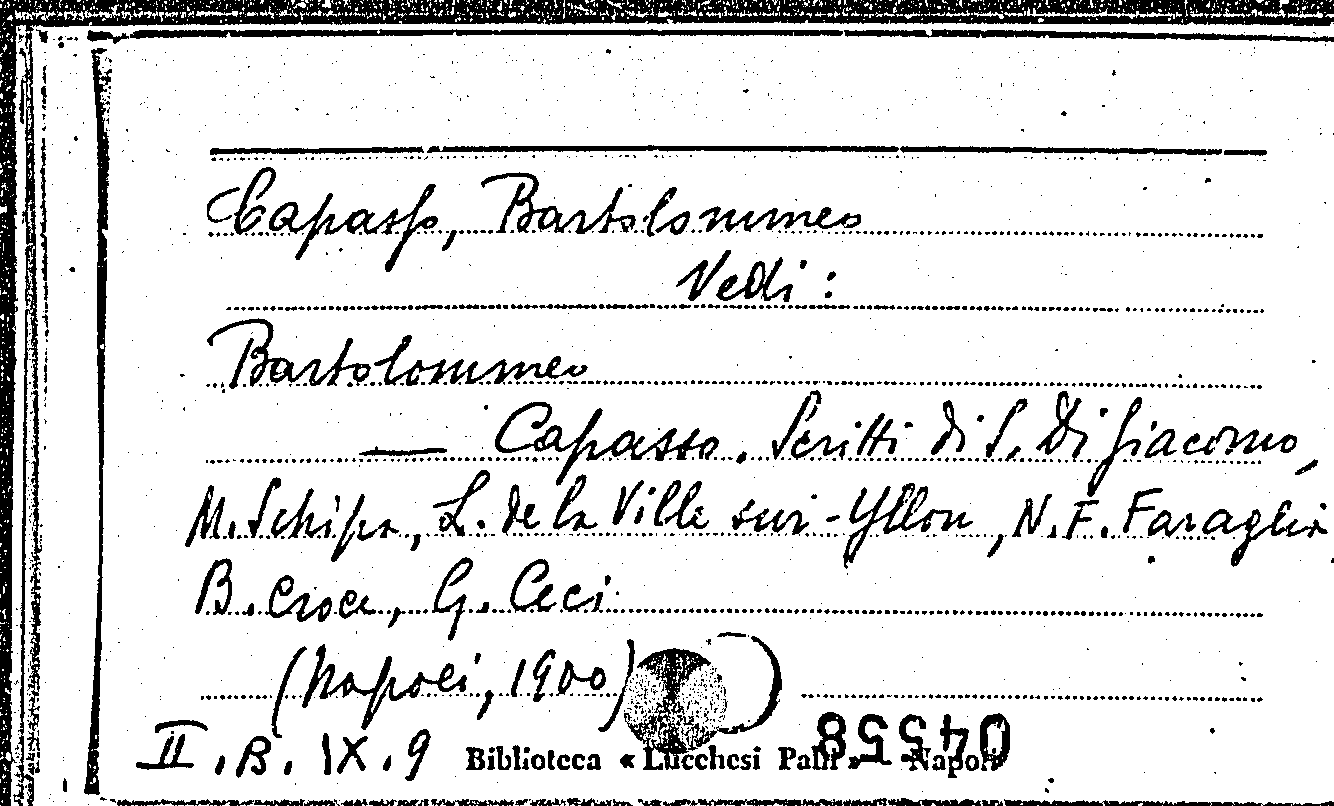 Capasso, Bartolommeo
Vedi :
Bartolommeo
— Capasso. Scritti di S. Di Giacomo,
M. Schipa, L. de la Ville sur-Yllon, N. F. Faraglia
B. Croce, G. Ceci
(Napoli, 1900)
II. B. IX. 9 Biblioteca « Lucchesi Palli » Napoli